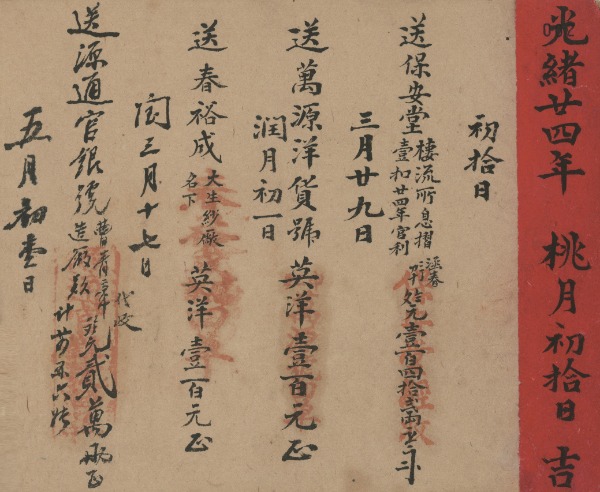 光緒廿四年 桃月初拾日 吉
初拾日
送保安堂 棲流所息摺 壹扣廿四年官利 元壹百四拾 兩
三月廿九日
送萬源洋貨號英洋壹百元正
潤月初一日
送春裕成 大生紗廠名下 英洋壹百元正
閏三月十七日
送源通官銀號 曹 造廠款 代收 元貳萬兩正 計 六張
五月初壹日